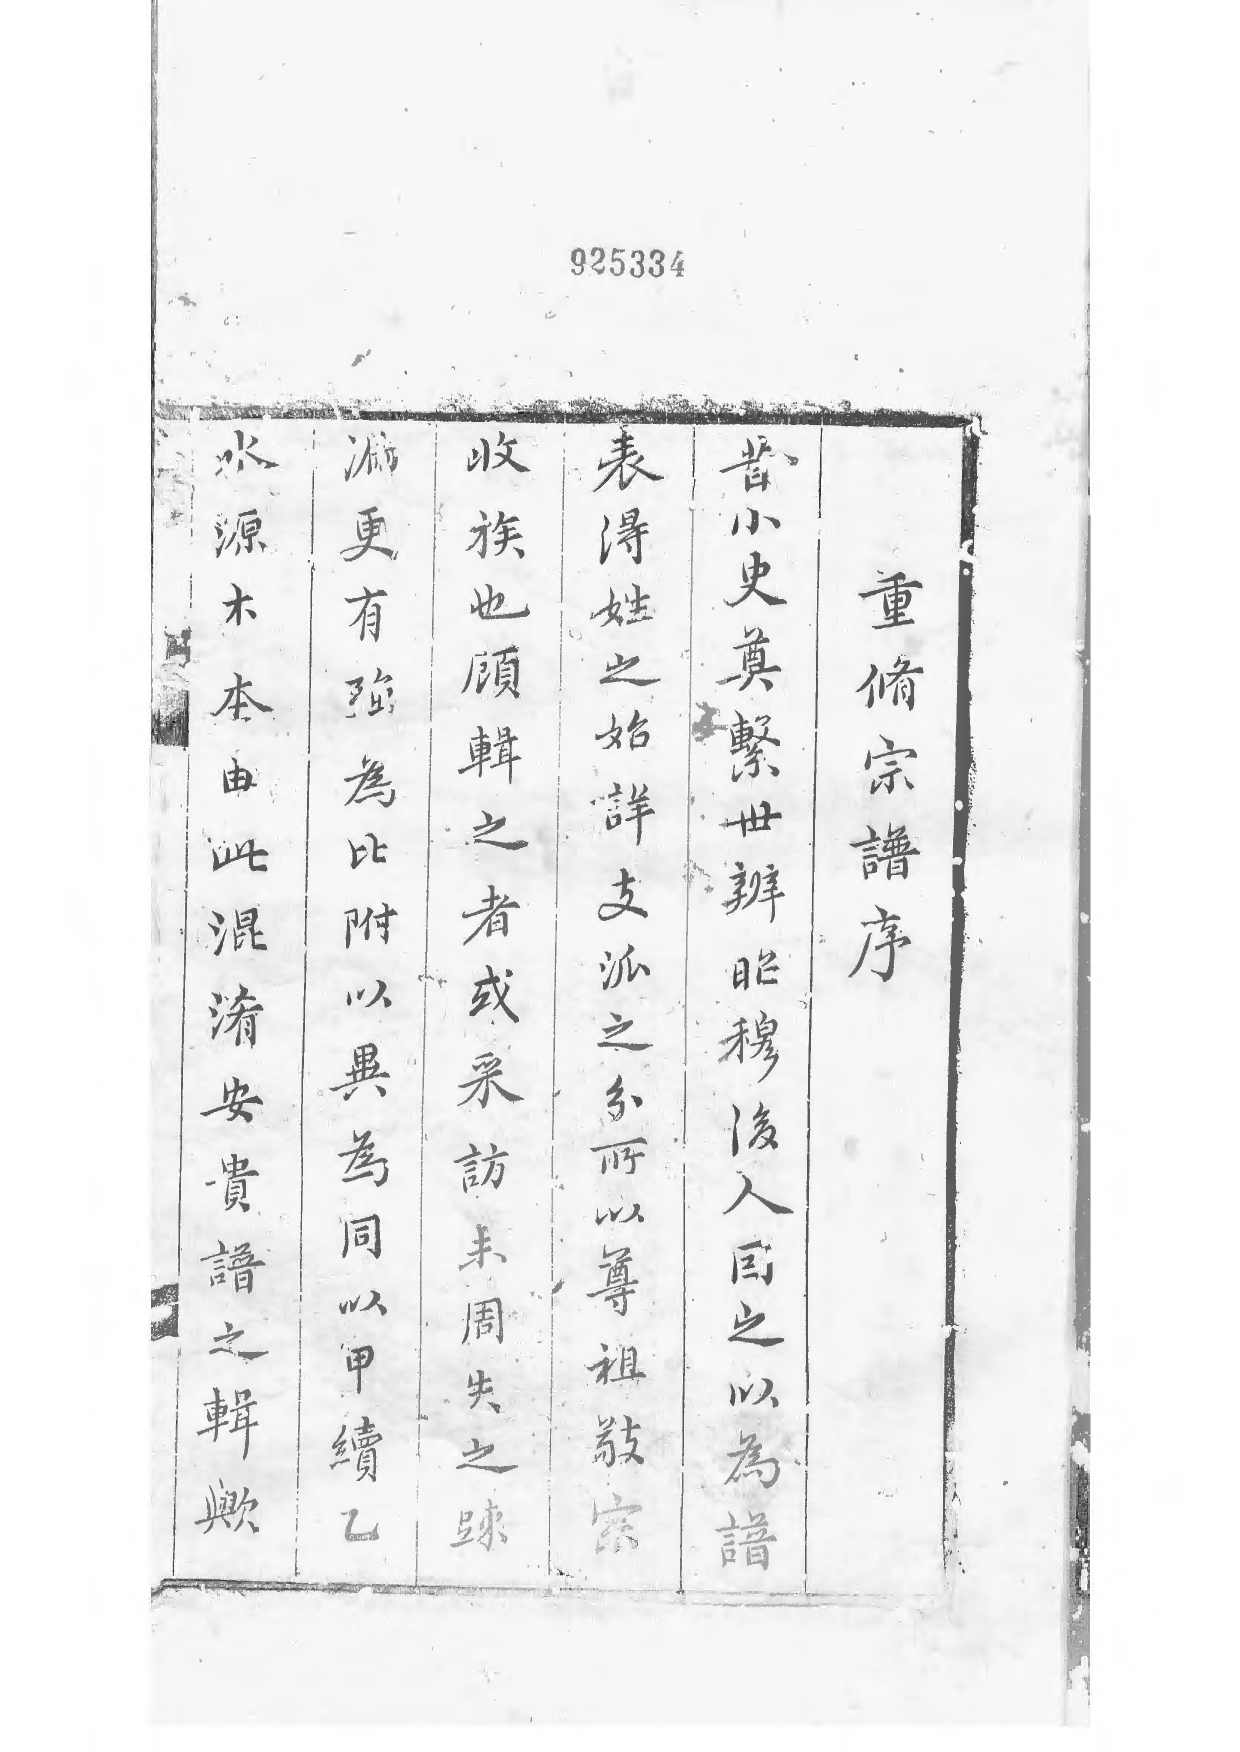 925334
重脩宗譜序
昔小史奠繫世辨昭穆後人因之以為譜
表得姓之始詳支派之分所以尊祖敬宗
收族也顧輯之者或采訪未周失之踈
漏更有強為比附以異為同以甲續乙
水源木本由此混淆安貴譜之輯歟